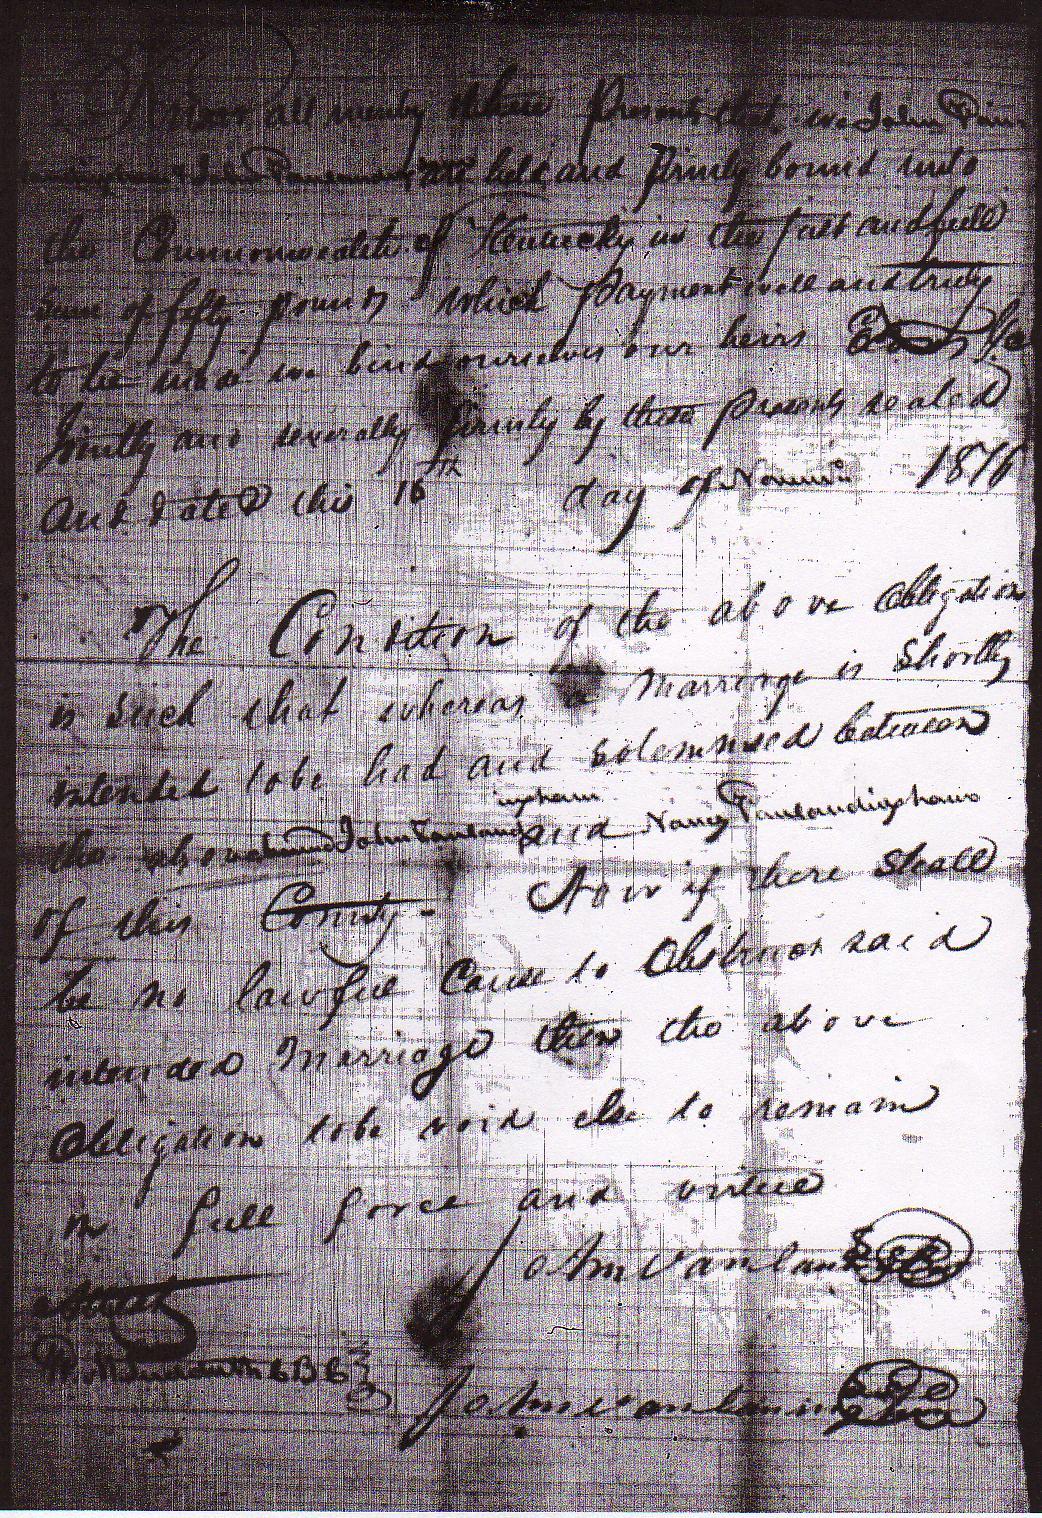 Know all men by these Presents that we John Van
John Vanlandingham are held and firmly bound unto
the Commonwealth of Kentucky in the Just and full
sum of fifty pounds which payment well and truly
to be made we bind ourselves our heirs &c
Jointly and severally firmly by these presents sealed
And dated this 16th day of 181
The Condition of the above Obligation
is Such that whereas a Marriage is Shortly
intended tobe had and Solemnised between
ingham
the above John Vanland and Nancy Vanlandingham
of this County - Now if there Shall
be no lawfull Cause to Obstruct said
intended Marriage then the above
Obligation tobe void else to remain
in full force and virtue
John Vanlan
Attest
John Vanlanding